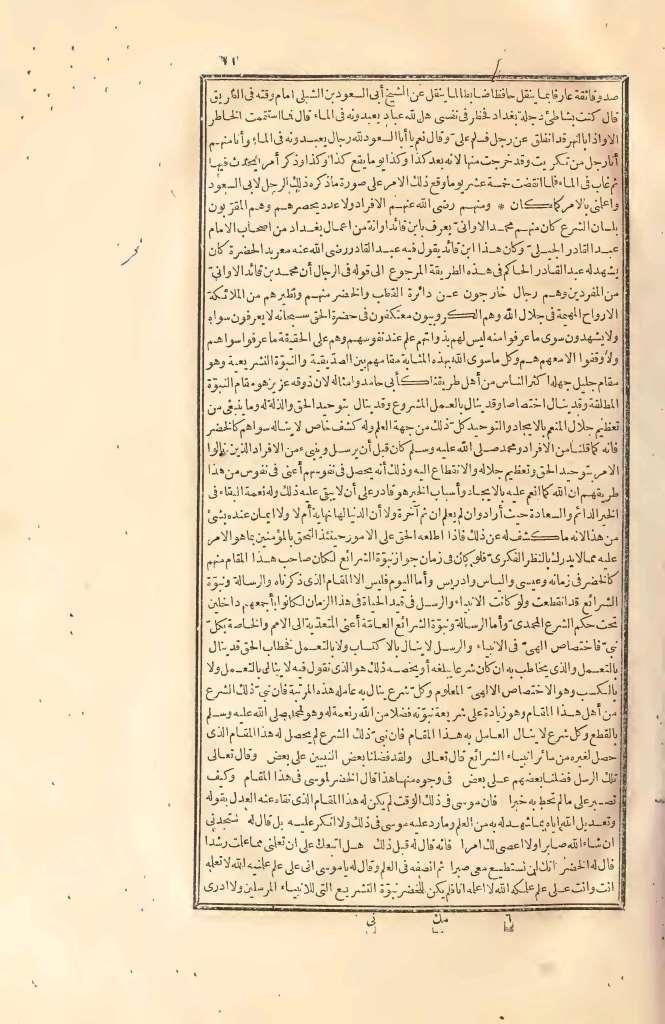 ٢١
صدوقا ثقة عارفا بما ينقل حافظا ضابطا لما ينقل عن الشيخ أبى السعود بن الشبلى امام وقته فى الطريق
قال كنت بشاطئ دجلة بغداد فخطر فى نفسى هل لله عباد يعبدونه فى الماء قال فما استتممت الخاطر
الا واذا بالنهر قد انفلق عن رجل فسلم على وقال نعم يا أبا السعود لله رجال يعبدونه فى الماء وأنا منهم
أنا رجل من تكريت وقد خرجت منها لانه بعد كذا وكذا يوما يقع كذا وكذا وذكر أمرا يحدث فيها
ثم غاب فى الماء فلما انقضت خمسة عشر يوما وقع ذلك الامر على صورة ما ذكره ذلك الرجل لابى السعود
واعلنى بالامر كما كان * ومنهم رضى الله عنهم الافراد ولا عدد يحصرهم وهم المقربون
بلسان الشرع كان منهم محمد الاوانى يعرف بابن قائد اوانة من اعمال بغداد من اصحاب الامام
عبد القادر الجيلى وكان هذا ابن قائد يقول فيه عبد القادر رضى الله عنه معربد الحضرة كان
يشهد له عبد القادر الحاكم فى هذه الطريقة المرجوع الى قوله فى الرجال أن محمد بن قائد الاوانى
من المفردين وهم رجال خارجون عن دائرة القطب والخضر منهم ونظيرهم من الملائكة
الارواح المهيمة فى جلال الله وهم الكروبيون معتكفون فى حضرة الحق سبحانه لا يعرفون سواه
ولا يشهدون سوى ما عرفوا منه ليس لهم بذواتهم علم عند نفوسهم وهم على الحقيقة ما عرفوا سواهم
ولا وقفوا الا معهم هم وكل ما سوى الله بهذه المثابة مقامهم بين الصديقية والنبوة الشريعية وهو
مقام جليل جهله اكثر الناس من أهل طريقنا كأبى حامد وامثاله لان ذوقه عزيز هو مقام النبوة
المطلقة وقد ينال اختصاصا وقد ينال بالعمل المشروع وقد ينال بتوحيد الحق والذلة له وما ينبغى من
تعظيم جلال المنعم بالايجاد والتوحيد كل ذلك من جهة العلم وله كشف خاص لا يناله سواهم كالخضر
فانه كما قلنا من الافراد ومحمد صلى الله عليه وسلم كان قبل أن يرسل وينبىء من الافراد الذين نالوا
الامر بتوحيد الحق وتعظيم جلاله والانقطاع اليه وذلك أنه يحصل فى نفوسهم أعنى فى نفوس من هذا
طريقهم ان الله كما انعم عليه بالايجاد وأسباب الخير هو قادر على أن لا يبقى عليه ذلك وله نعمة البقاء فى
الخير الدائم والسعادة حيث أراد وان لم يعلم ان ثم آخرة ولا أن الدنيا لها نهاية أم لا ولا ايمان عنده بشئ
من هذا لانه ما كشف له عن ذلك فاذا اطلعه الحق على الامور حينئذ التحق بالمؤمنين بما هو الامر
عليه مما لا يدرك بالنظر الفكرى فلو كان فى زمان جواز نبوة الشرائع لكان صاحب هذا المقام منهم
كالخضر فى زمانه وعيسى والياس وادريس وأما اليوم فليس الا المقام الذى ذكرناه والرسالة ونبوة
الشرائع قد انقطعت ولو كانت الانبياء والرسل فى قيد الحياة فى هذا الزمان لكانوا بأجمعهم داخلين
تحت حكم الشرع المحمدى وأما الرسالة ونبوة الشرائع العامة أعنى المتعدية الى الامم والخاصة بكل
نبى فاختصاص الهى فى الانبياء والرسل لا ينال بالاكتساب ولا بالتعمل فخطاب الحق قد ينال
بالتعمل والذى يخاطب به ان كان شرعا يبلغه أو يخصه ذلك هو الذى نقول فيه لا ينال بالتعمل ولا
بالكسب وهو الاختصاص الالهى المعلوم وكل شرع ينال به عامله هذه المرتبة فان نبى ذلك الشرع
من أهل هذا المقام وهو زيادة على شريعة نبوته فضلا من الله ونعمة له وهو لمحمد صلى الله عليه وسلم
بالقطع وكل شرع لا ينال العامل به هذا المقام فان نبى ذلك الشرع لم يحصل له هذا المقام الذى
حصل لغيره من سائر انبياء الشرائع قال تعالى ولقد فضلنا بعض النبيين على بعض وقال تعالى
تلك الرسل فضلنا بعضهم على بعض فى وجوه منها هذا قال الخضر لموسى فى هذا المقام وكيف
تصبر على ما لم تحط به خبرا فان موسى فى ذلك الوقت لم يكن له هذا المقام الذى نفاه عنه العدل بقوله
وتعديل الله اياه بما شهد له به من العلم وما رد عليه موسى فى ذلك ولا انكر عليه بل قال له ستجدنى
ان شاء الله صابرا ولا اعصى لك امرا فانه قال له قبل ذلك هل اتبعك على ان تعلمنى مما علمت رشدا
قال له الخضر انك لن تستطيع معى صبرا ثم انصفه فى العلم وقال له يا موسى انى على علم علمنيه الله لا تعلمه
انت وانت على علم علمكه الله لا اعلمه انا فلم يكن للخضر نبوة التشريع التى للانبياء المرسلين ولا ادرى
٦ مك نى